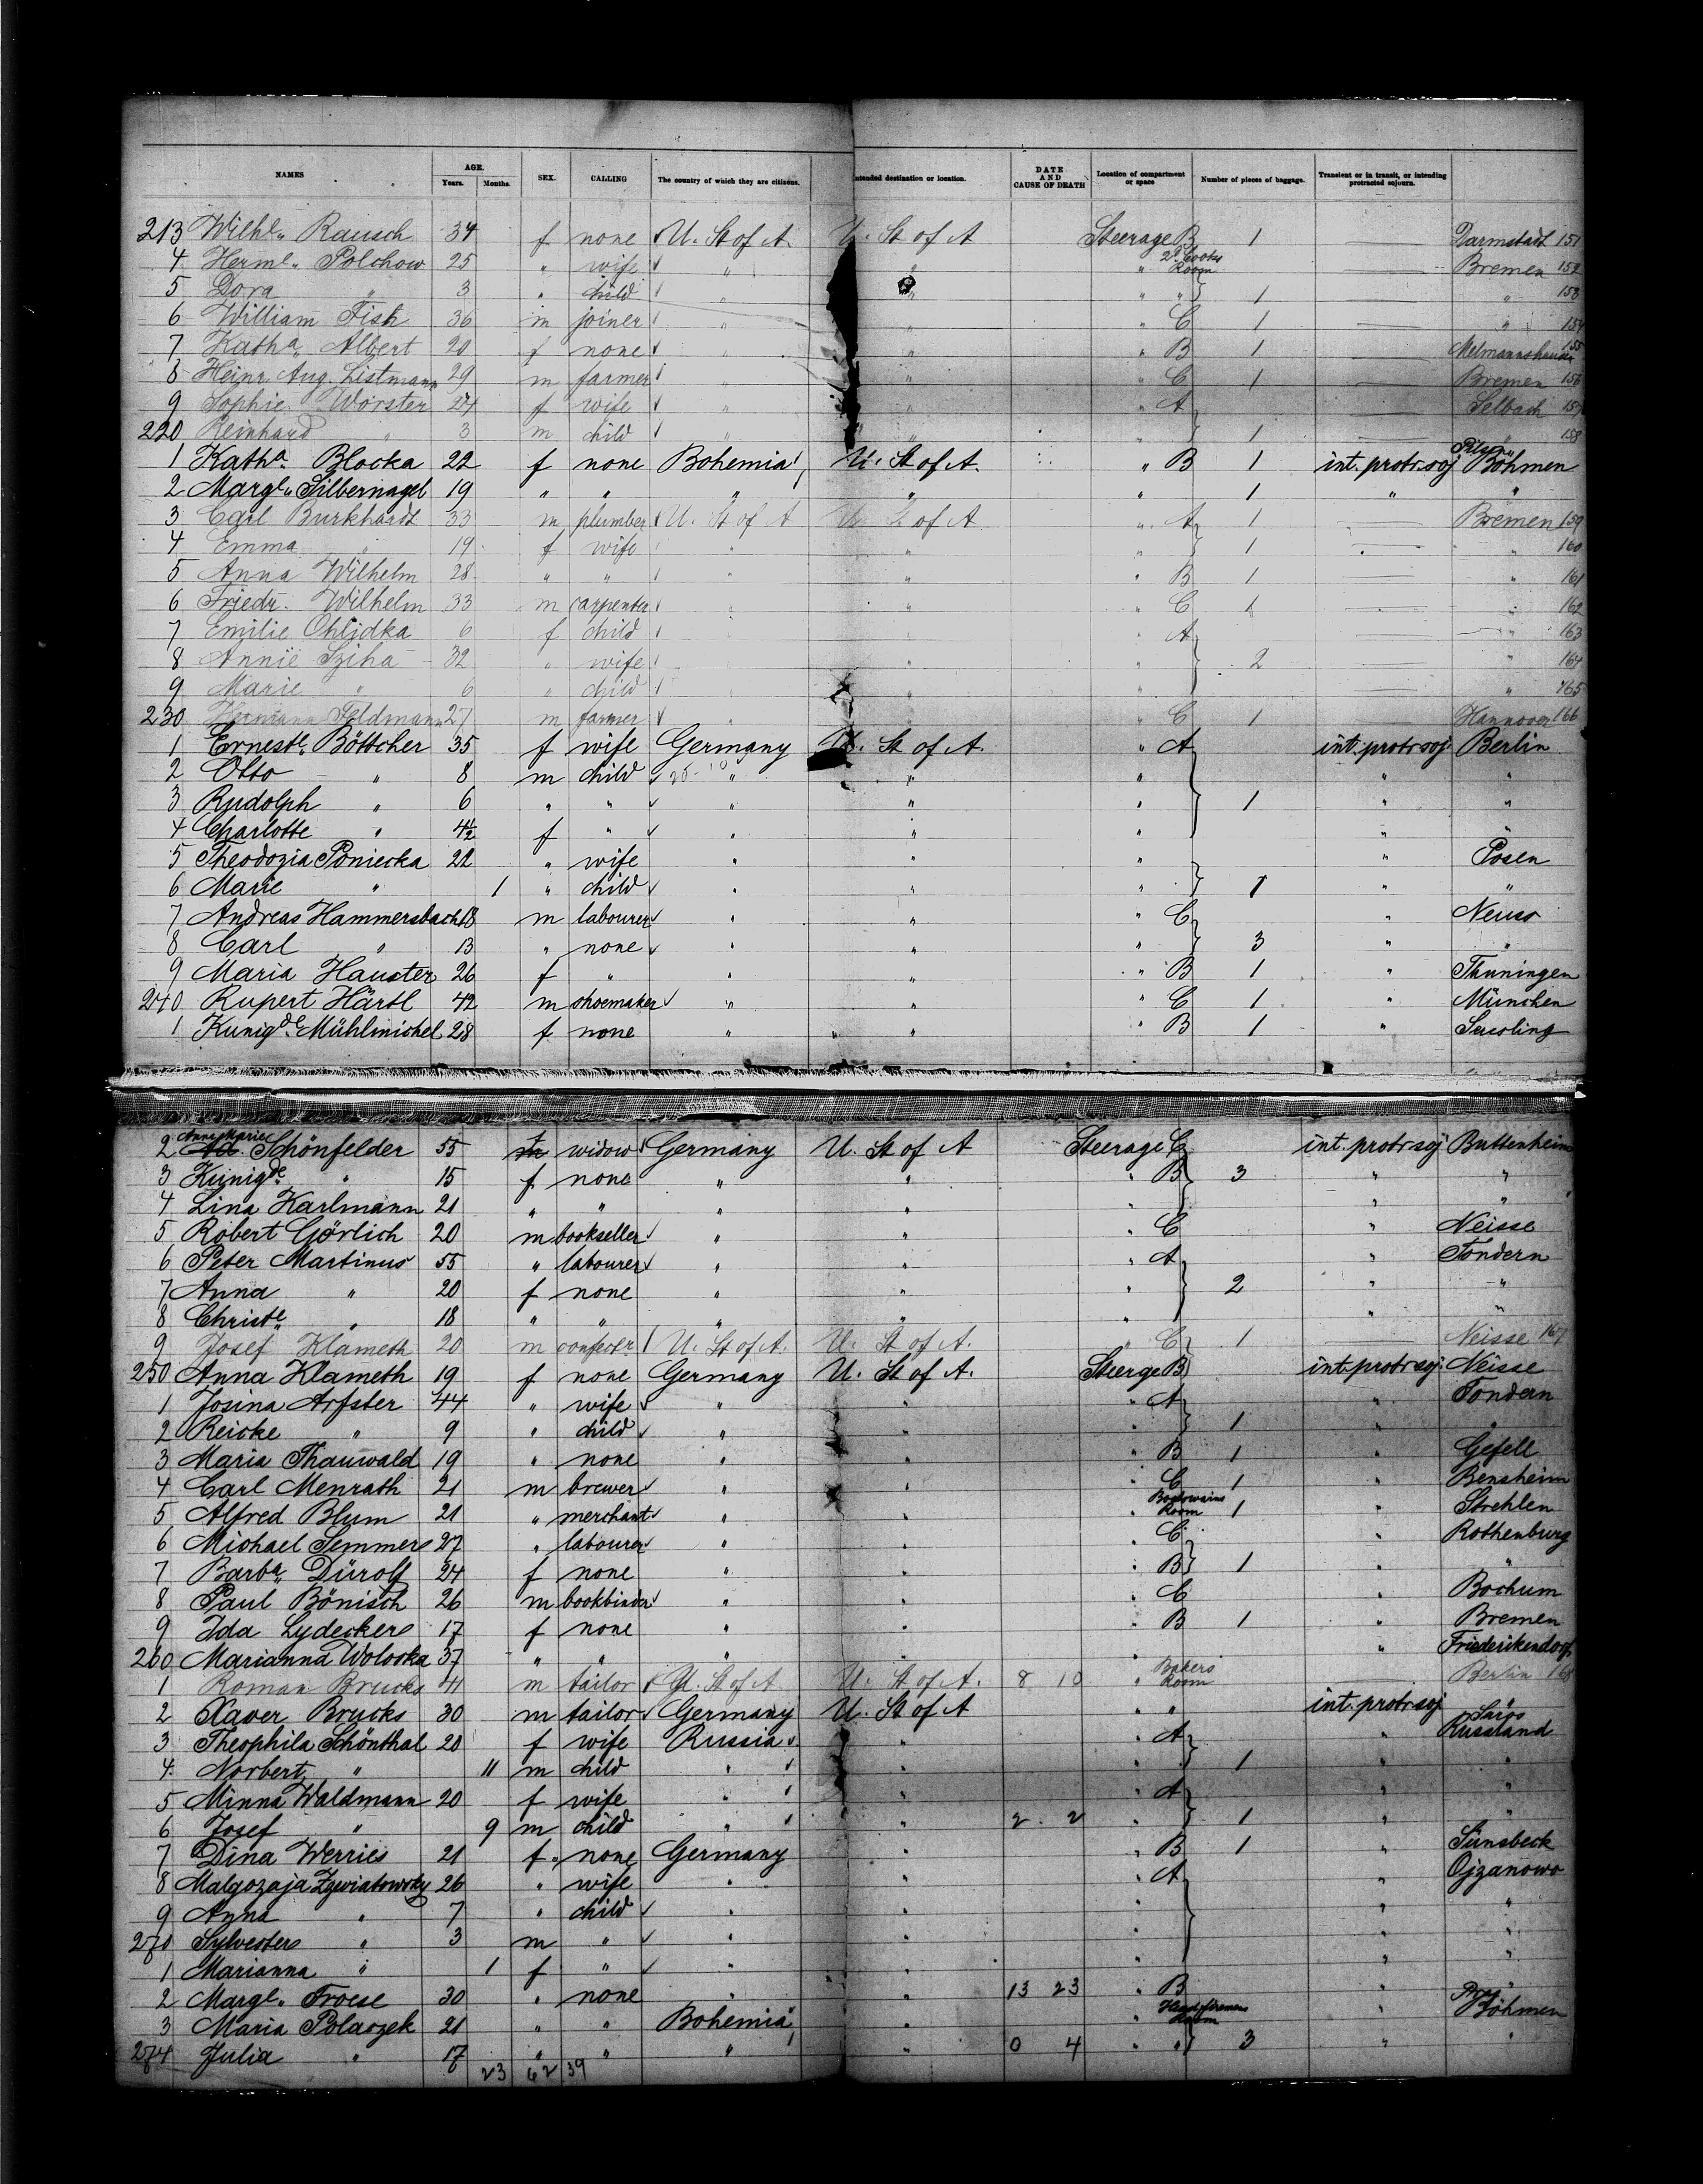 NAMES AGE. Years. Months. SEX. CALLING The country of which they are citizens. Intended destination or location. DATE AND CAUSE OF DEATH Location of compartment or space Number of pieces of baggage. Transient or in transit, or intending protracted sejourn.
213 Wilhe. Rausch 34 f none U. St of A. U. St of A Steerage B 1 Darmstadt 151
4 Herme. Polchow 25 " wife " " " 2d Cooks Room Bremen 152
5 Dora " 3 " child " " " " 1 " 153
6 William Fish 36 m joiner " " " C 1 " 154
7 Katha. Albert 20 f none " " " B 1 155
8 Heinr. Aug. Listmann 29 m farmer " " " C 1 Bremen 156
9 Sophie Worster 24 f wife " " " A Selbach 157
220 Reinhard " 3 m child " " " 1 " 158
1 Katha. Blocka 22 f none Bohemia U. St of A. " B 1 int. protr. soj Pilsen Böhmen
2 Margte. Silbernagel 19 " " " " " 1 " "
3 Carl Burkhardt 33 m plumber U. St of A U. St of A " A 1 Bremen 159
4 Emma " 19 f wife " " " 1 " 160
5 Anna Wilhelm 28 " " " " " B 1 " 161
6 Friedr. Wilhelm 33 m carpenter " " " C 1 " 162
7 Emilie Ohlidka 6 f child " " " A " 163
8 Annie Sziha 32 " wife " " " 2 " 164
9 Marie " 6 " child " " " " 165
230 Hermann Feldmann 27 m farmer " " " C 1 Hannover 166
1 Erneste. Böttcher 35 f wife Germany U. St of A. " A int. protr. soj. Berlin
2 Otto " 8 m child " " " " "
3 Rudolph " 6 " " " " " 1 " "
4 Charlotte " 4½ f " " " " " "
5 Theodozia Poniecka 22 " wife " " " " Posen
6 Marie " 1 " child " " " 1 " "
7 Andreas Hammersbach 18 m labourer " " " C " Neuss
8 Carl " 13 " none " " " 3 " "
9 Maria Hauster 26 f " " " " B 1 " Thuningen
240 Rupert Härtl 42 m shoemaker " " " C 1 " München
1 Kunigde. Mühlmichel 28 f none " " " B 1 "
2 Anna Marie Schönfelder 55 f widow Germany U. St of A Steerage C int. protr. soj Buttenheim
3 Kunigde. " 15 f none " " " B 3 " "
4 Lina Karlmann 21 " " " " " " "
5 Robert Görlich 20 m bookseller " " " C " Neisse
6 Peter Martinus 55 " labourer " " " A " Tondern
7 Anna " 20 f none " " " 2 " "
8 Christe. " 18 " " " " " " "
9 Josef Klameth 20 m confectr. U. St of A. U. St of A. " C 1 Neisse 167
250 Anna Klameth 19 f none Germany U. St of A. Steerge B int. protr. soj. Neisse
1 Josina Arfster 44 " wife " " " A " Tondern
2 Reicke " 9 " child " " " 1 " "
3 Maria Thauwald 19 " none " " " B 1 " Gefell
4 Carl Menrath 21 m brewer " " " C 1 " Bensheim
5 Alfred Blum 21 " merchant " " " Boatswains Room 1 " Strehlen
6 Michael Semmers 27 " labourer " " " C " Rothenburg
7 Barba. Dürolf 24 f none " " " B 1 " "
8 Paul Bönisch 26 m bookbinder " " " C " Bochum
9 Ida Lydeckers 17 f none " " " B 1 " Bremen
260 Marianna Wolooka 37 " " " " " " Friederikendorf
1 Roman Brucks 41 m tailor U. St of A U. St of A. 8 10 " Bakers Room Berlin 168
2 Xaver Brucks 30 m tailor Germany U. St of A " " int. protr. soj.
3 Theophila Schönthal 20 f wife Russia " " A " Russland
4 Norbert " 11 m child " " " 1 " "
5 Minna Waldmann 20 f wife " " " A " "
6 Josef " 9 m child " " 2 2 " 1 " "
7 Dina Werries 21 f none Germany " " B 1 " Sünsbeck
8 Malgozaja Zywiatowsky 26 " wife " " " A " Ojzanowo
9 Anna " 7 " child " " " " "
270 Sylvester " 3 m " " " " " "
1 Marianna " 1 f " " " " " "
2 Margte. Froese 30 " none " " 13 23 " B " "
3 Maria Polaczek 21 " " Bohemia " " Room " Prag Böhmen
274 Julia " 17 " " " " 0 4 " " 3 " "
23 62 39